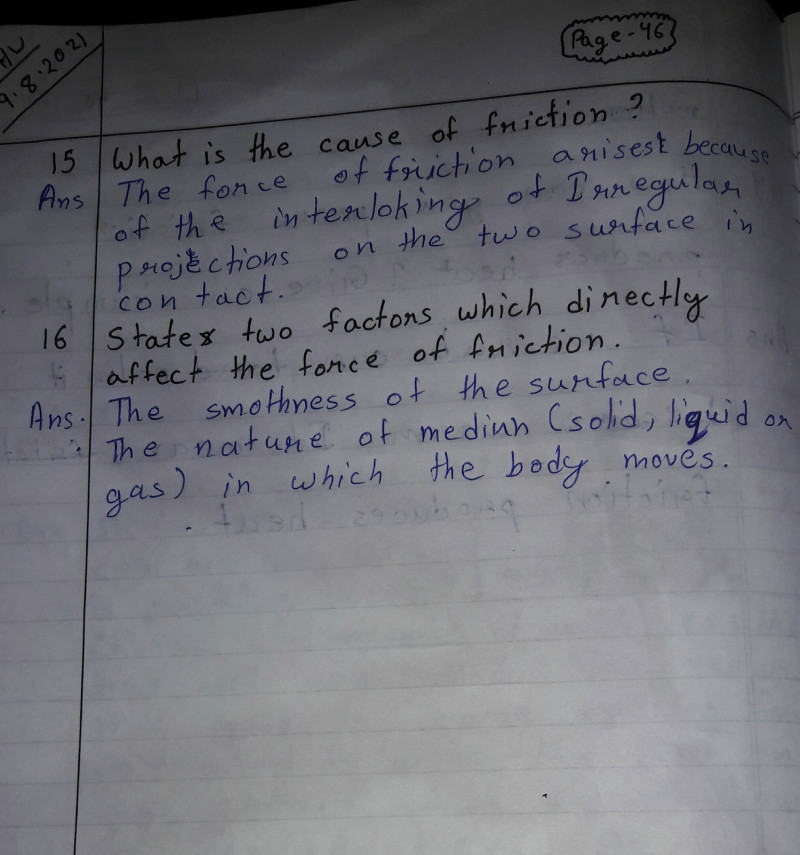 HW
9.8.2021
Page-46
15 What is the cause of friction?
Ans The force of friction arisest because
of the interloking of Irregular
projections on the two surface in
contact.
16 State two factors which directly
affect the force of friction.
Ans. The smothness of the surface.
The nature of mediun (solid, liquid or
gas) in which the body moves.